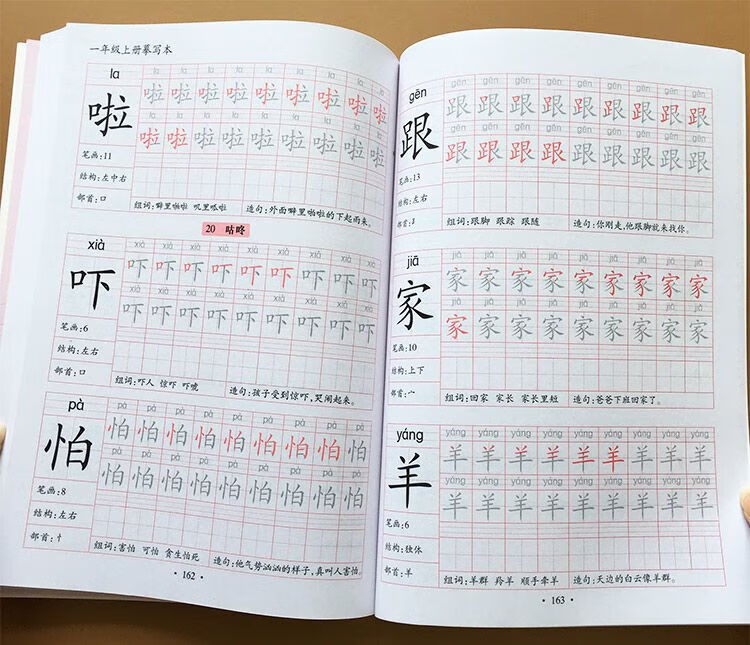 一年级上册摹写本
la
啦
la la la la la la la la la
啦 啦 啦 啦 啦 啦 啦 啦 啦
la la la la la la la la la
啦 啦 啦 啦 啦 啦 啦 啦 啦
笔画:11
结构:左中右
部首:口
组词:噼里啪啦 叽里呱啦 造句:外面噼里啪啦的下起雨来。
20 咕咚
xià
吓
xià xià xià xià xià xià xià xià xià
吓 吓 吓 吓 吓 吓 吓 吓 吓
xià xià xià xià xià xià xià xià xià
吓 吓 吓 吓 吓 吓 吓 吓 吓
笔画:6
结构:左右
部首:口
组词:吓人 惊吓 吓唬 造句:孩子受到惊吓,哭闹起来。
pà
怕
pà pà pà pà pà pà pà pà pà
怕 怕 怕 怕 怕 怕 怕 怕 怕
pà pà pà pà pà pà pà pà pà
怕 怕 怕 怕 怕 怕 怕 怕 怕
笔画:8
结构:左右
部首:忄
组词:害怕 可怕 贪生怕死 造句:他气势汹汹的样子,真叫人害怕。
· 162 ·
gēn
跟
gēn gēn gēn gēn gēn gēn gēn gēn gēn
跟 跟 跟 跟 跟 跟 跟 跟 跟
gēn gēn gēn gēn gēn gēn gēn gēn gēn
跟 跟 跟 跟 跟 跟 跟 跟 跟
笔画:13
结构:左右
部首:
组词:跟脚 跟踪 跟随 造句:你刚走,他跟脚就来找你。
jiā
家
jiā jiā jiā jiā jiā jiā jiā jiā jiā
家 家 家 家 家 家 家 家 家
jiā jiā jiā jiā jiā jiā jiā jiā jiā
家 家 家 家 家 家 家 家 家
笔画:10
结构:上下
部首:宀
组词:回家 家长 家长里短 造句:爸爸下班回家了。
yáng
羊
yáng yáng yáng yáng yáng yáng yáng yáng yáng
羊 羊 羊 羊 羊 羊 羊 羊 羊
yáng yáng yáng yáng yáng yáng yáng yáng yáng
羊 羊 羊 羊 羊 羊 羊 羊 羊
笔画:6
结构:独体
部首:羊
组词:羊群 羚羊 顺手牵羊 造句:天边的白云像羊群。
· 163 ·